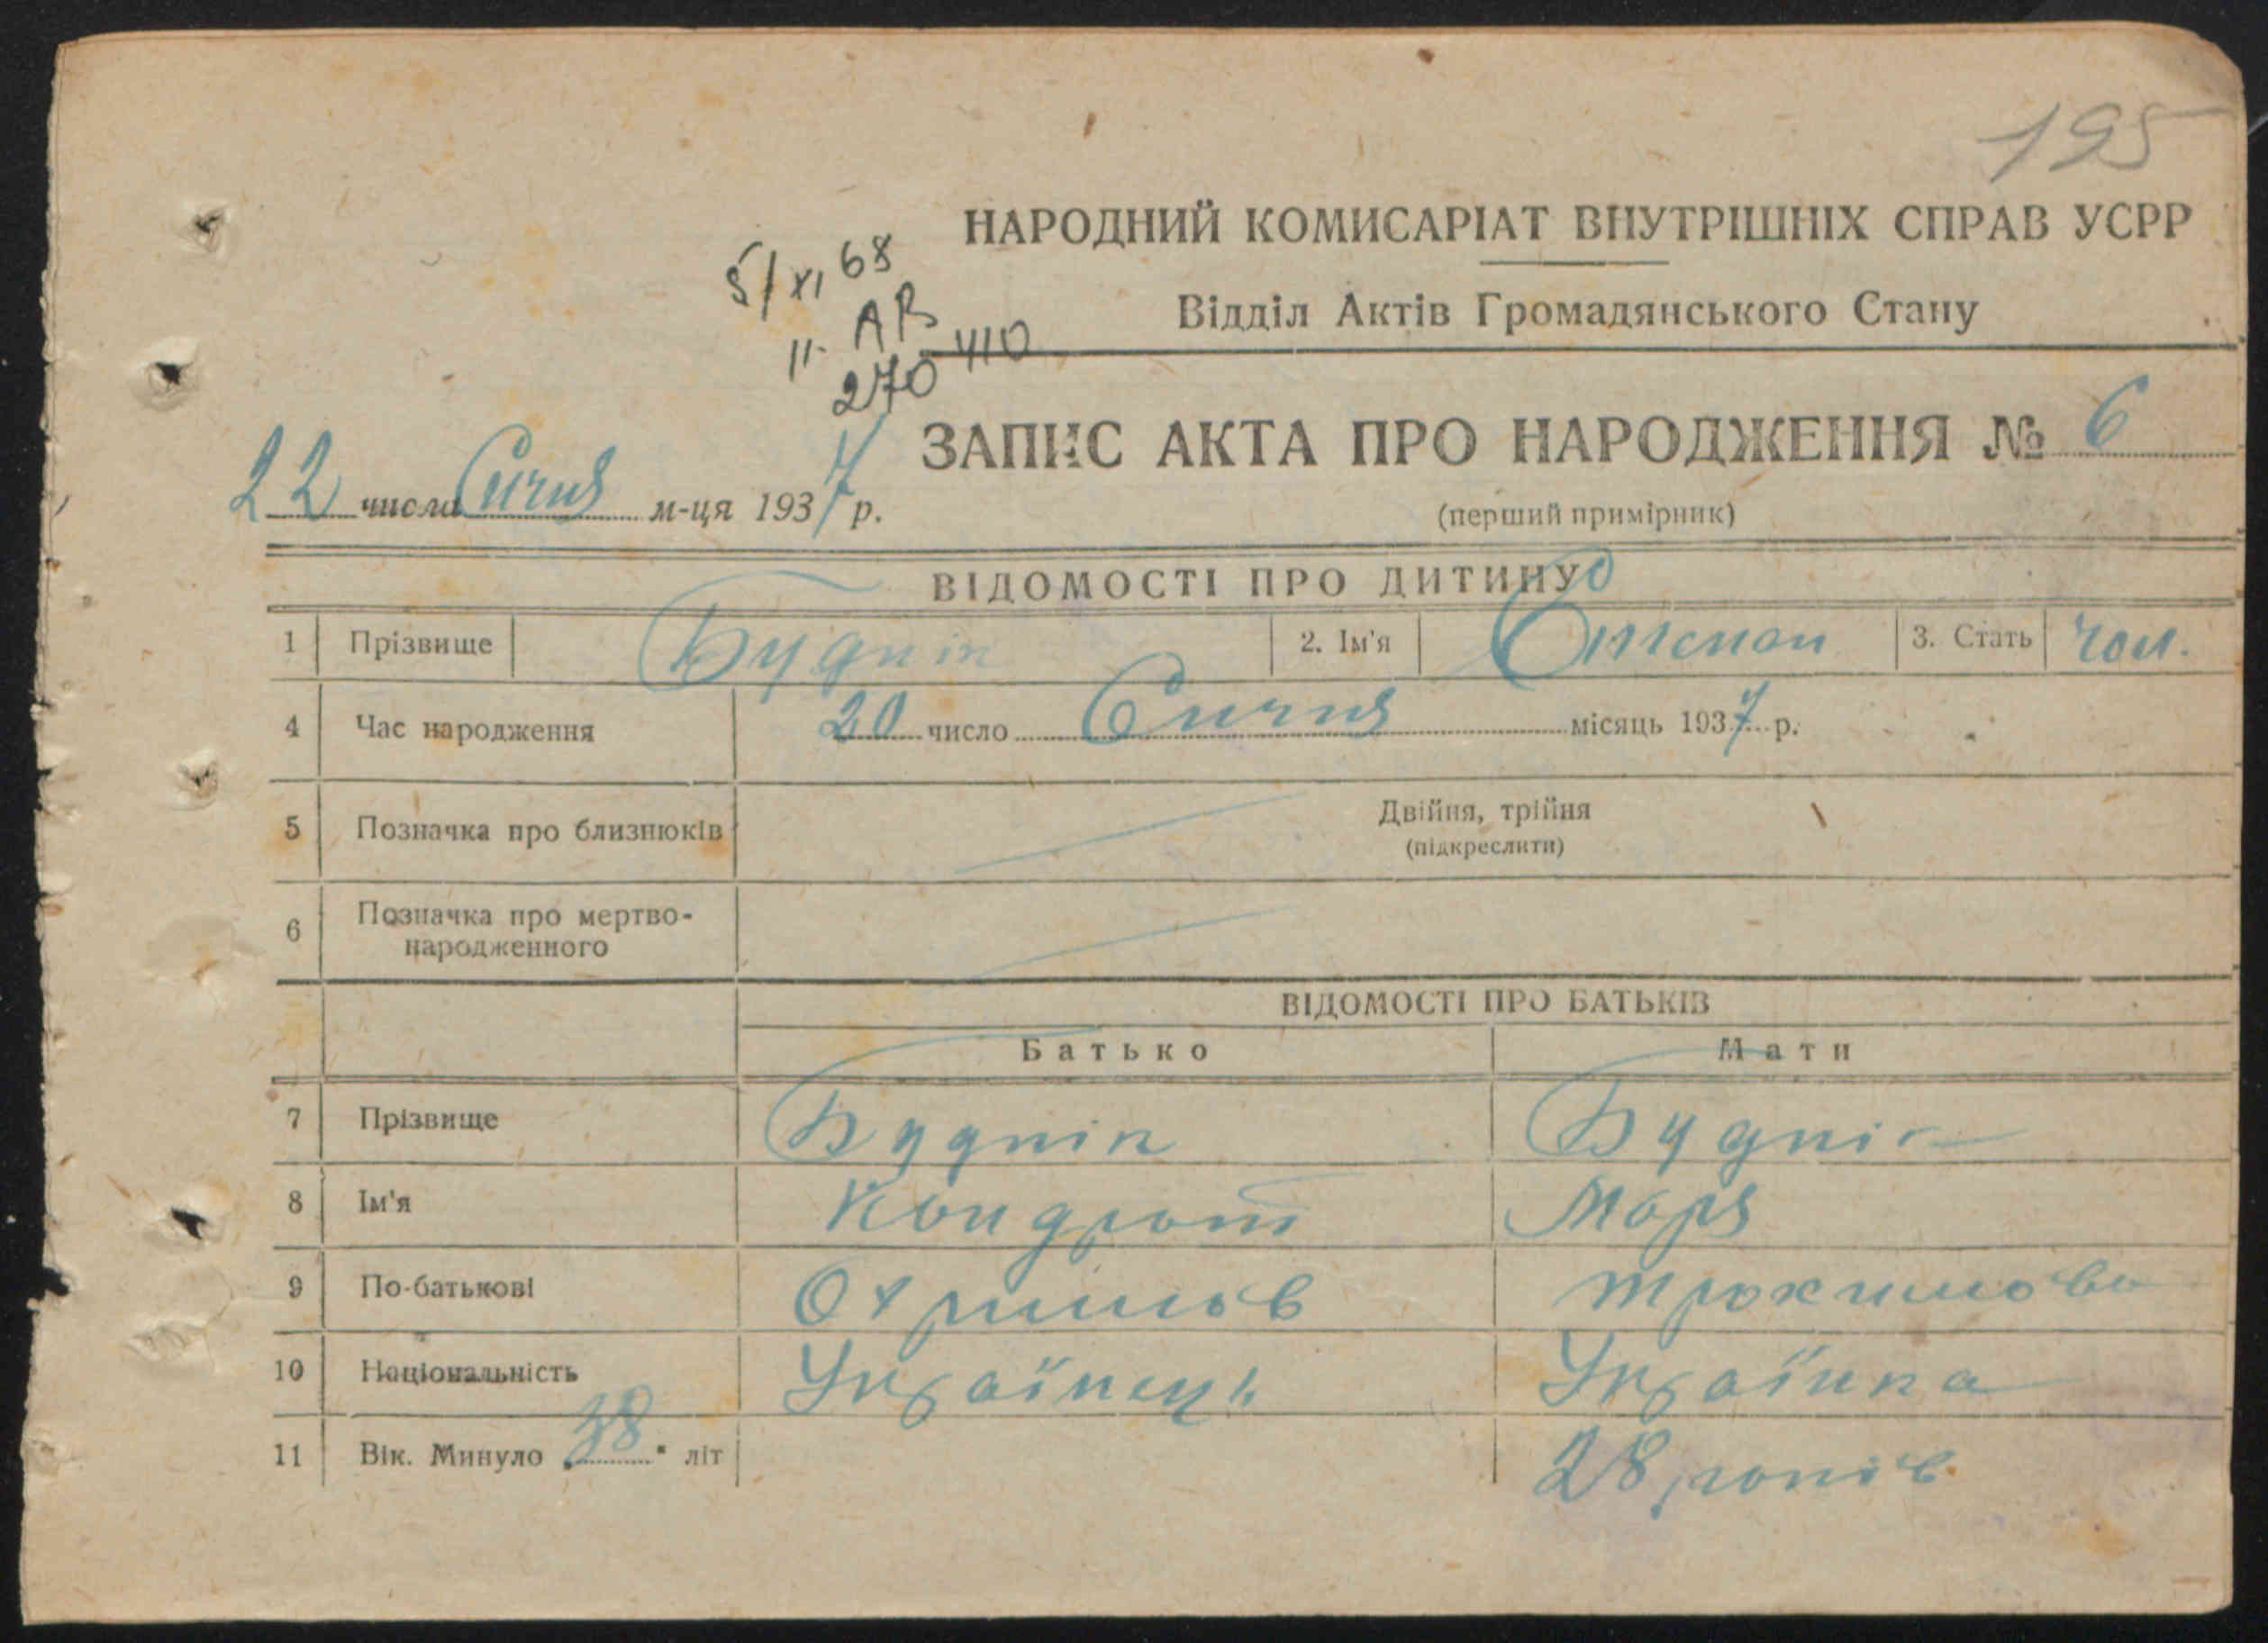 195
НАРОДНИЙ КОМИСАРІАТ ВНУТРІШНІХ СПРАВ УСРР
5/XI 68
Відділ Актів Громадянського Стану
II-АВ 410
270
ЗАПИС АКТА ПРО НАРОДЖЕННЯ № 6
22 числа Січня м-ця 1937 р.
(перший примірник)
ВІДОМОСТІ ПРО ДИТИНУ
1 Прізвище Буднік 2. Ім'я Степан 3. Стать чол.
4 Час народження 20 число Січня місяць 1937 р.
5 Позначка про близнюків Двійня, трійня
(підкреслити)
6 Позначка про мертво-
народженного
ВІДОМОСТІ ПРО БАТЬКІВ
Батько Мати
7 Прізвище Буднік Буднік
8 Ім'я Кондрат Маря
9 По-батькові Трохимова
10 Національність Українець Українка
11 Вік. Минуло 38 літ 28 років